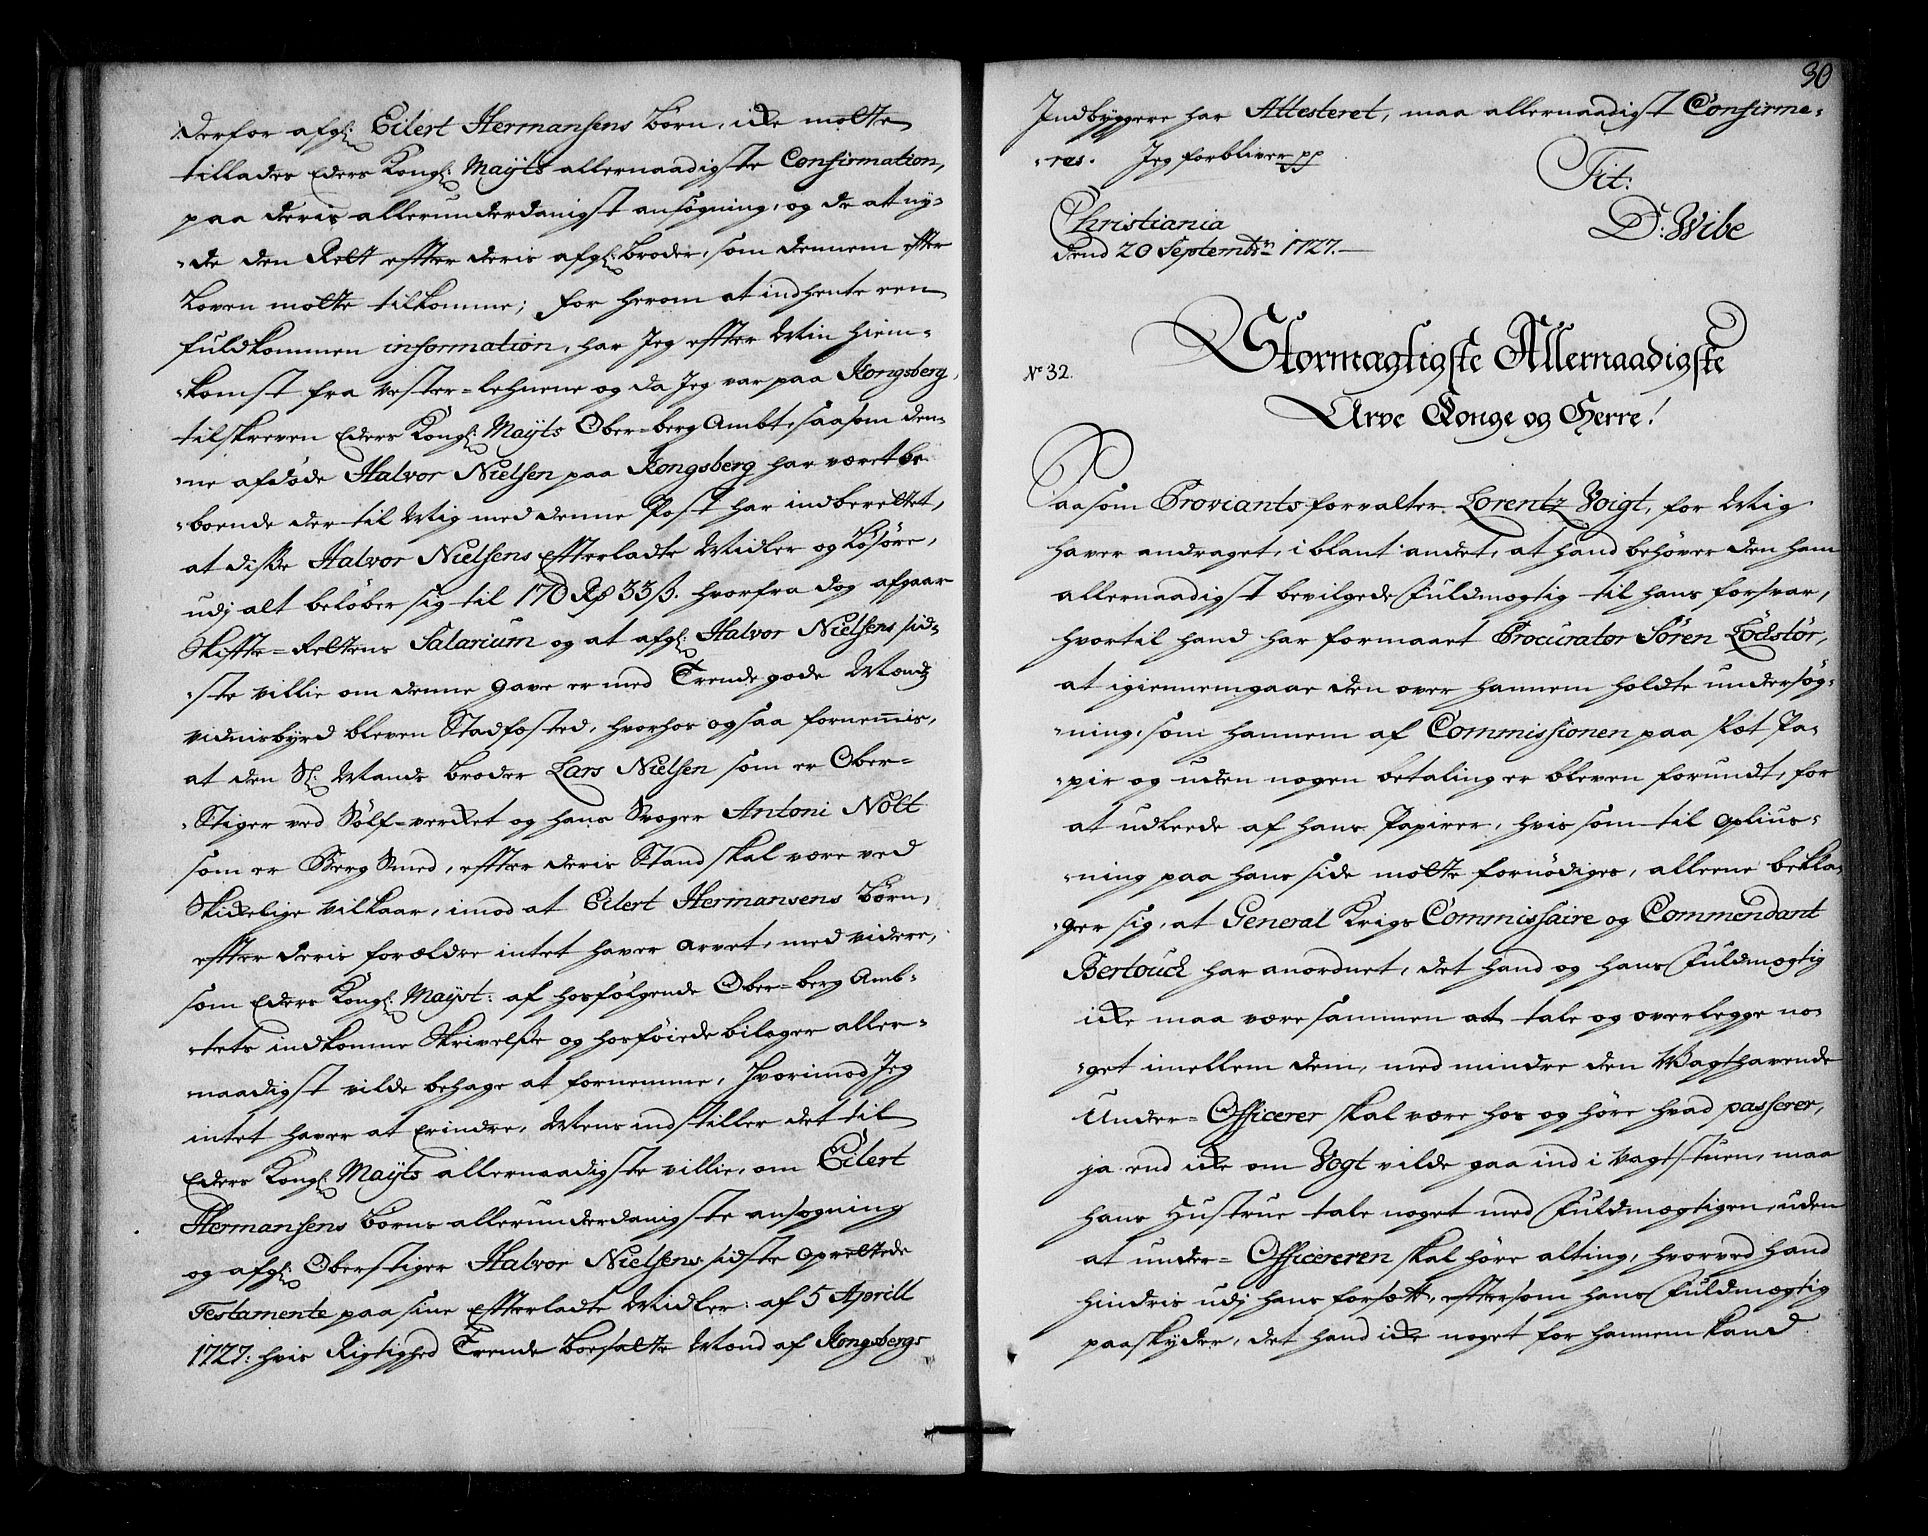 derfor afg: Eilert Hermansens Børn, icke motte
tillades Eders Kongl: Mayts allernaadigste Confirmation,
paa deris allerunderdanigst ansøgning, og de at ny-
-de den Rett effter deris afg: Broder, som dennem effter
Loven motte tilkomme; for herom at indhente een
fuldkommen information, har Jeg effter Min Hiem-
-komst fra Vester-Lehnene og da Jeg var paa Kongsberg,
tilskreven Eders Kongl: Mayts Ober-berg Ambt, saasom den-
-ne afdøde Halvor Nielsen paa Kongsberg har været be-
-boende der til Mig med denne Post har indberettet,
at disse Halvor Nielsens Efterladte Midler og Løsøre,
udj alt beløber sig til 170 Rd 33 ß. hvorfra dog afgaar
Skiffte-Rettens Salarium og at afg: Halvor Nielsens sid-
-ste villie om denne gave er med Trende gode Mænds
vidnisbyrd bleven Stadfæsted, hvorhos ogsaa fornemmis,
at den Sl: Mands Broder Lars Nielsen som er Ober-
-Stiger ved Sølf-verket og hans Svoger Antoni Nolt
som er Berg Smed, effter deris Stand skal være ved
Skikkelige Vilkaar, imod at Eilert Hermansens Børn,
effter deris forældre intet haver arvet, med videre,
som Eders Kongl: Mayst: af hosfølgende Ober-berg Amb-
-tets indkomne Skrivelse og hosføiede bilager aller-
-naadigst vilde behage at fornemme, Hvorimod Jeg
intet haver at Erindre, Mens indstiller det til
Eders Kongl: Mayts allernaadigste villie, om Eilert
Hermansens Børns allerunderdanigste ansøgning
og afg: Oberstiger Halvor Nielsens sidste oprettede
Testamente paa sine Effterladte Midler: af 5 Aprill
1727: hvis Rigtighed Trende Boesatte Mænd af Kongsbergs
30
Indbyggere har Attesteret, maa allernaadigst Confirme-
-res. Jeg forbliver pp
Tit:
Christiania
D: Wibe
dend 20 Septembr 1727.
Stormægtigste Allernaadigste
No 32.
Arve Konge og Herre!
Saasom Proviantsforvalter Lorentz Voigt, for Mig
haver andraget, iblant andet, at hand behøver den ham
allernaadigst bevilgede Fuldmægtig til hans forsvar,
hvortil hand har formaaet Procurator Søren Lødstør,
at igiennemgaae den over hannem holdte undersøg-
-ning, som hannem af Commissionen paa slet Pa-
-pir og uden nogen betaling er bleven forundt, for
at udleede af hans Papirer, hvis som til oplius-
-ning paa hans side motte fornødiges, alleene bekla-
-ger sig, at General Krigs Commissaire og Commendant
Bertouch har anordnet, det hand og hans Fuldmægtig
icke maa være sammen at tale og overlegge no-
-get imellem dem, med mindre den Vagthavende
Under-Officerer skal være hos og høre hvad passerer,
ja end icke om Vogt vilde gaa ind i Vagtstuen, maa
hans Hustrue tale noget med Fuldmægtigen, uden
at under-Officereren skal høre alting, hvorved hand
hindris udj hans forsætt, effter som hans Fuldmægtig
paaskyder, det hand icke noget for hannem kand